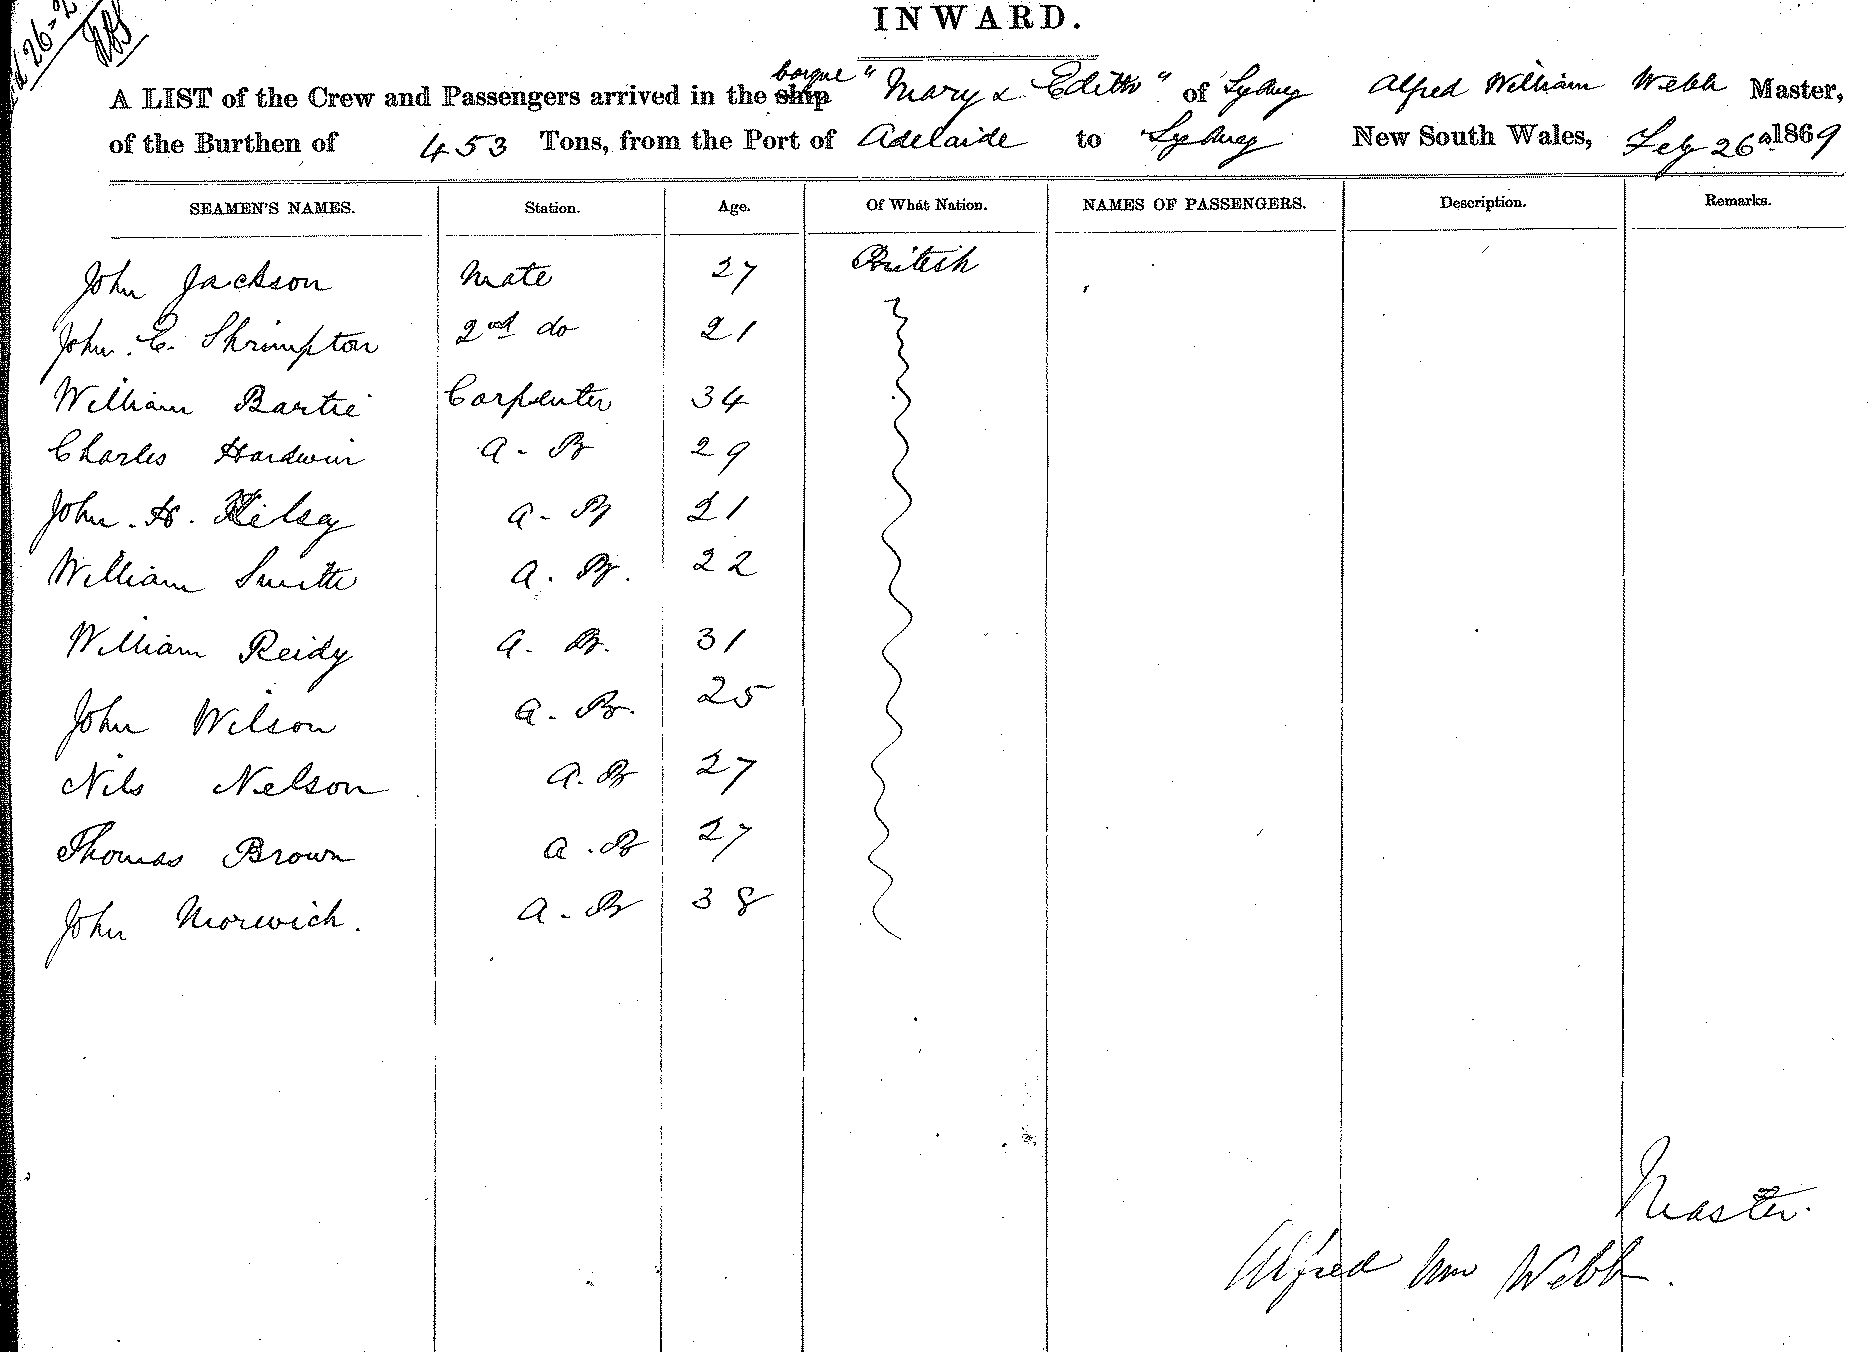 INWARD.
A LIST of the Crew and Passengers arrived in the ship barque "Mary & Edith" of Sydney Alfred William Webb Master,
of the Burthen of 453 Tons, from the Port of Adelaide to Sydney New South Wales, Feby 26th 1869
SEAMEN'S NAMES. Station. Age. Of What Nation. NAMES OF PASSENGERS. Description. Remarks.
John Jackson Mate 27 British
John. E. Shrimpton 2nd do 21
William Bartie Carpenter 34
Charles Hardwin A-B 29
John. H. Kilsey A-B 21
William Smith A.B. 22
William Reidy A.B. 31
John Wilson A-B. 25
Nils Nelson A.B 27
Thomas Brown A.B 27
John Morwich. A-B 38
Master.
Alfred Wm Webb.